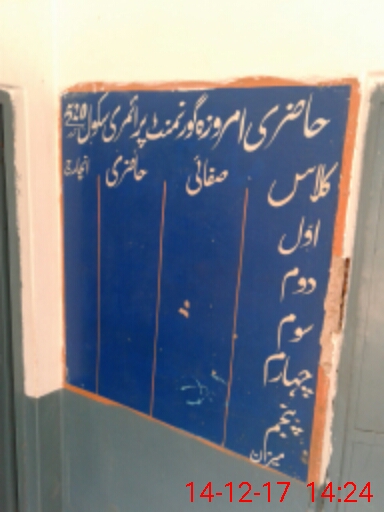 حاضری امروزہ گورنمنٹ پرائمری سکول
کلاس صفائی حاضری انچارج
اول
دوم
سوم
چہارم
پنجم
میزان
14-12-17 14:24